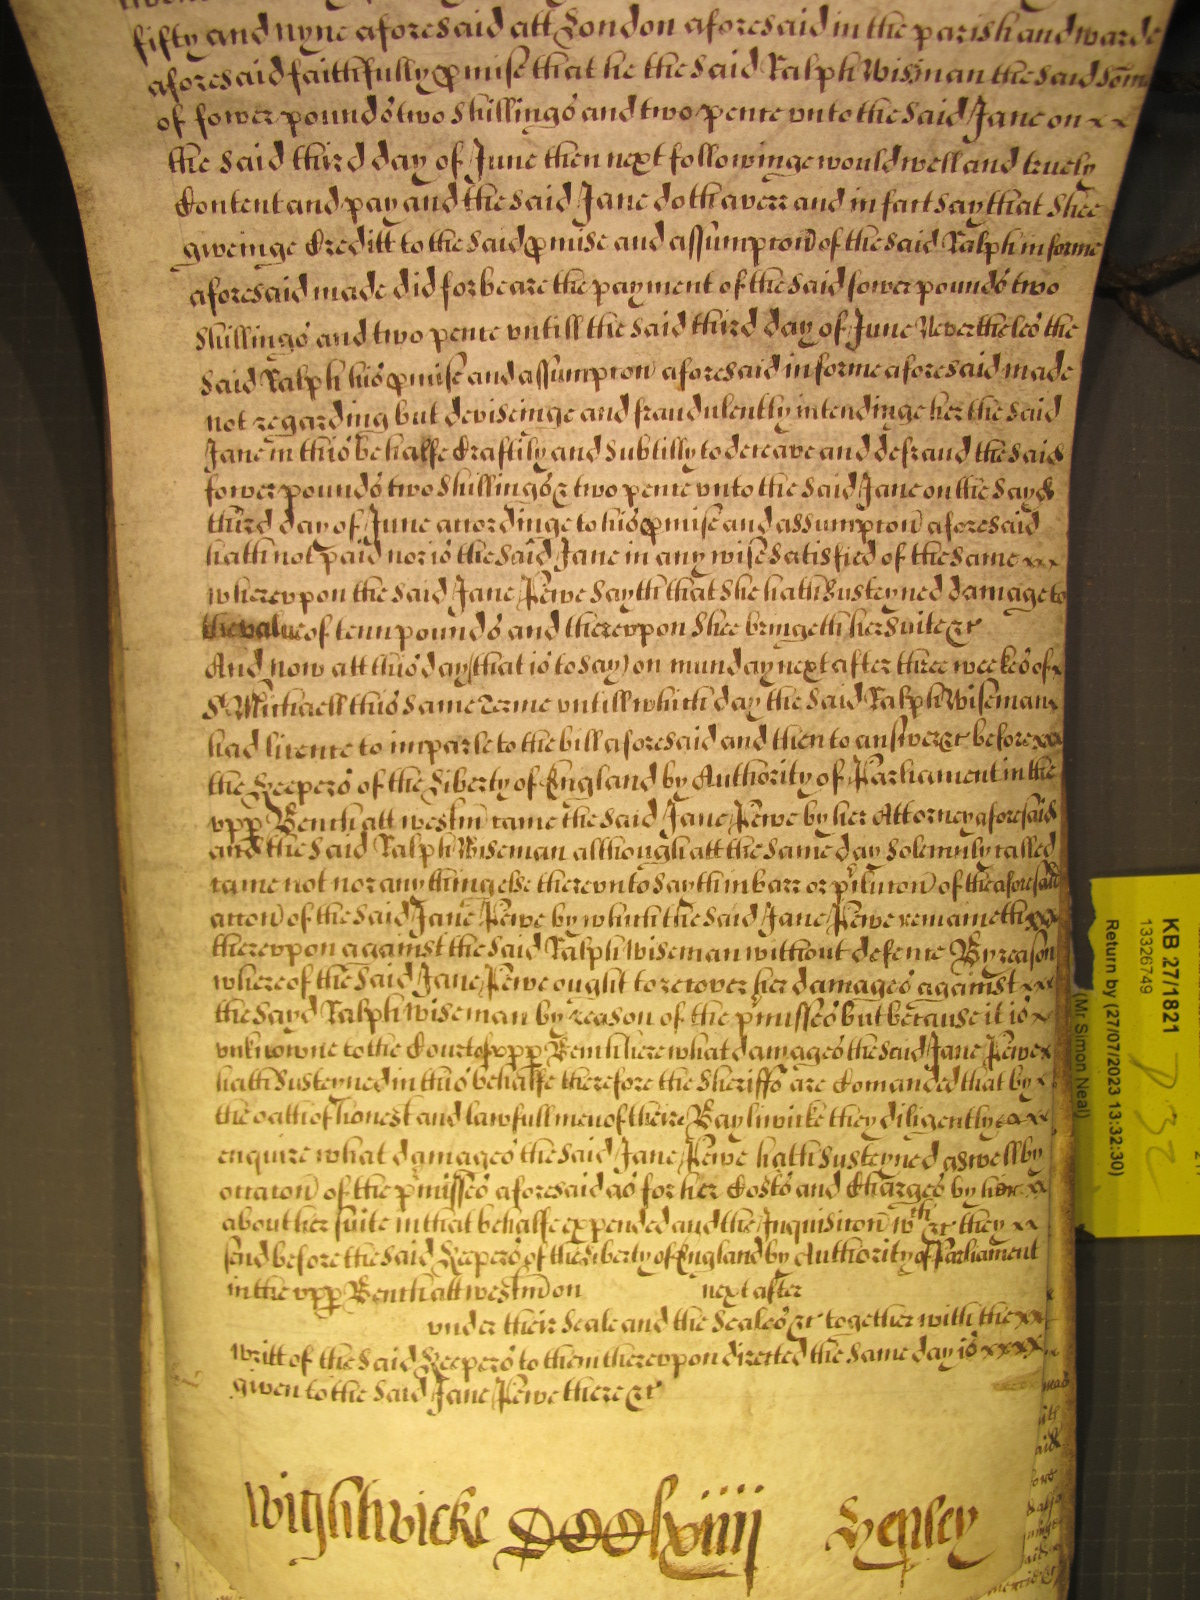 fifty and nyne aforesaid att London aforesaid in the parish and warde
aforesaid faithfully pmise that he the said Ralph Wisman the said Som
of fower pounds two shillings and two pence vnto the said Jane on x x
the said third day of June then next followinge would well and truely
Content and pay and the said Jane doth averr and in fact say that Shee
giveinge Creditt to the said pmise and assumpcon of the said Ralph in forme
aforesaid made did forbeare the payment of the said fower pounds two
Shillings and two pence vntill the said third day of June Nevertheles the
said Ralph his pmise and assumpcon aforesaid in forme aforesaid made
not regarding but deviseinge and fraudulently intendinge her the said
Jane in this behalfe Craftily and Subtilly to deceave and defraud the said
fower pounds two Shillings & two pence vnto the said Jane on the sayd
third day of June accordinge to his pmise and assumpcon aforesaid
hath not paid nor is the said Jane in any wise satisfied of the same xx
wherevpon the said Jane Pewe Sayth that she hath Susteyned damage to
the value of tenn pounds and therevpon Shee bringeth her Suite &c
And now att this day (that is to say) on munday next after three weekes of x
St Michaell this Same Terme vntill which day the said Ralph Wiseman x
had licence to imparle to the bill aforesaid and then to answer &c before xxx
the Keepers of the Liberty of England by Authority of Parliament in the
vpp Bench att westm came the said Jane Pewe by her Attorney aforesaid
and the said Ralph Wiseman although att the same day Solemnly called
came not nor any thinge else therevnto Sayth in barr or pclucon of the aforesaid
accon of the said Jane Pewe by which the said Jane Pewe remaineth xx
therevpon against the said Ralph Wiseman without defence By reason
whereof the said Jane Pewe ought to recover her damages against xxx
the sayd Ralph Wiseman by reason of the pmisses but because it is x
vnknowne to the Court of vpp Bench here what damages the said Jane Pewe x
hath Susteyned in this behalfe therefore the Sheriffs are Comanded that by x
the oath of honest and lawfull men of theire Bayliwicke they diligently xxx
enquire what damages the said Jane Pewe hath Susteyned aswell by
occacon of the pmisses aforesaid as for her Costs and Charges by her x
about her suite in that behalfe expended and the Inquisicon wth &c they xx
send before the said Keepers of the Liberty of England by Authority of Parliament
in the vpp Bench att westm on next after
vnder their Seale and the Seales &c together with the xx
writt of the said Keepers to them therevpon directed the same day is xxxx
given to the said Jane Pewe there &c
Wightwicke lxiiii Henley
KB 27/1821
13326749
Return by (27/07/2023 13:32:30)
(Mr Simon Neal)